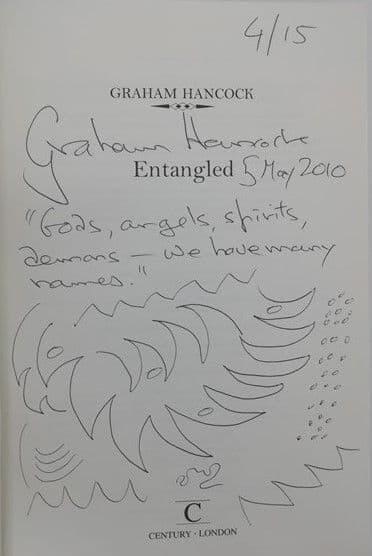 4/15
GRAHAM HANCOCK
Graham Hancock
Entangled 5 May 2010
"Gods, angels, spirits,
demons — we have many
names."
C
CENTURY · LONDON